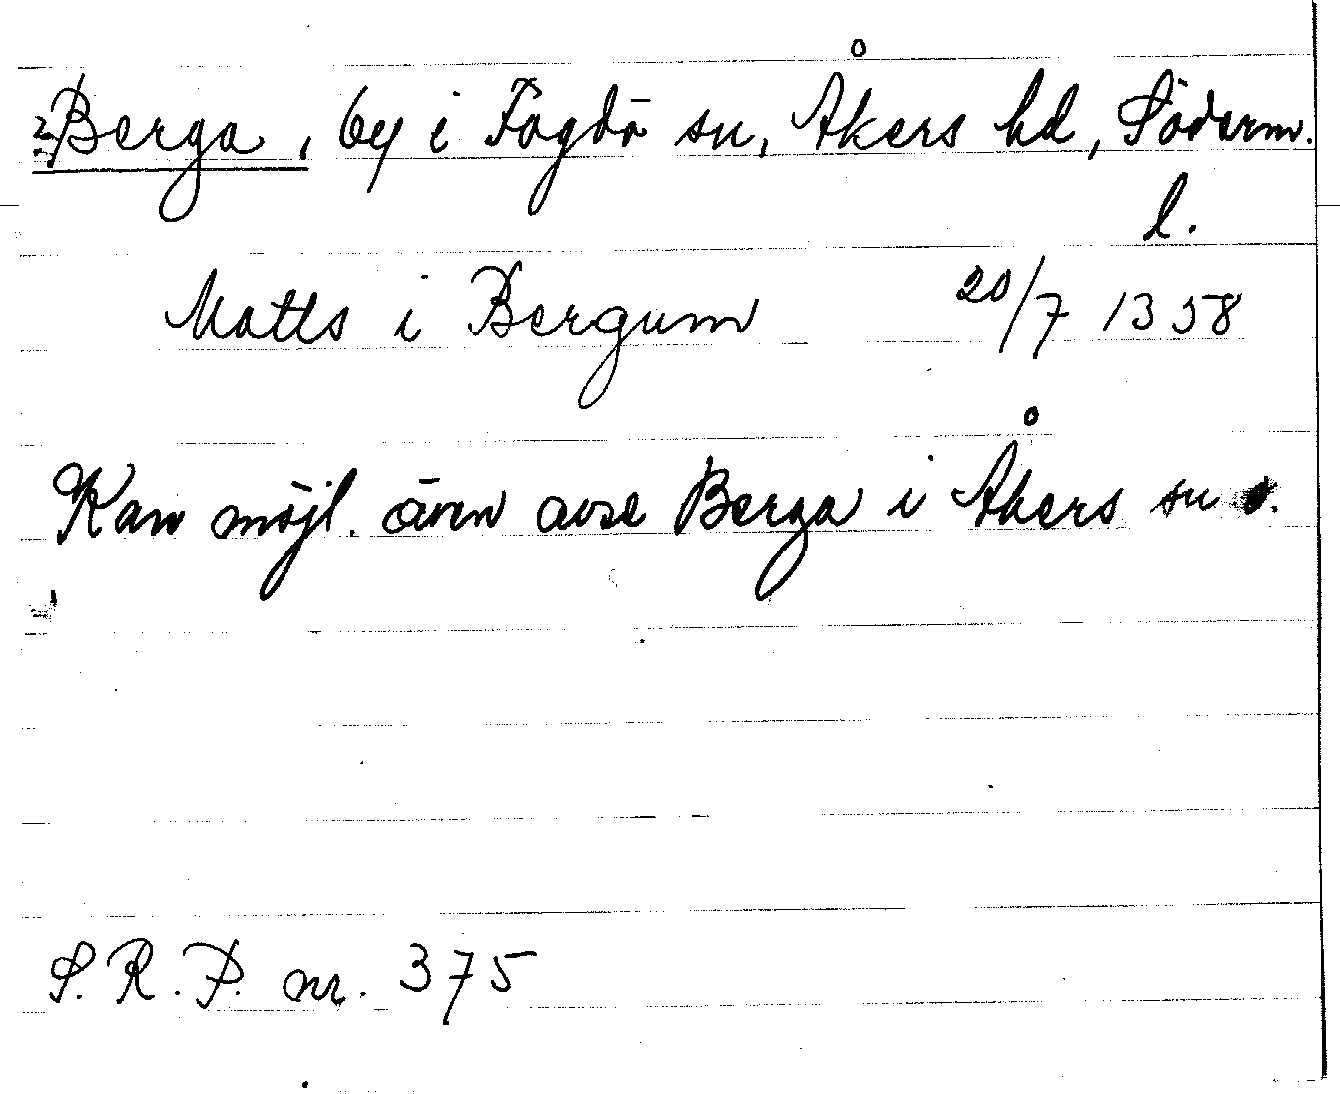 Berga, by i Fogdö sn, Åkers hd, Söderm.
l.
Matts i Bergum 20/7 1358
Kan möjl. även avse Berga i Åkers sn o.
S.R.P. nr. 375